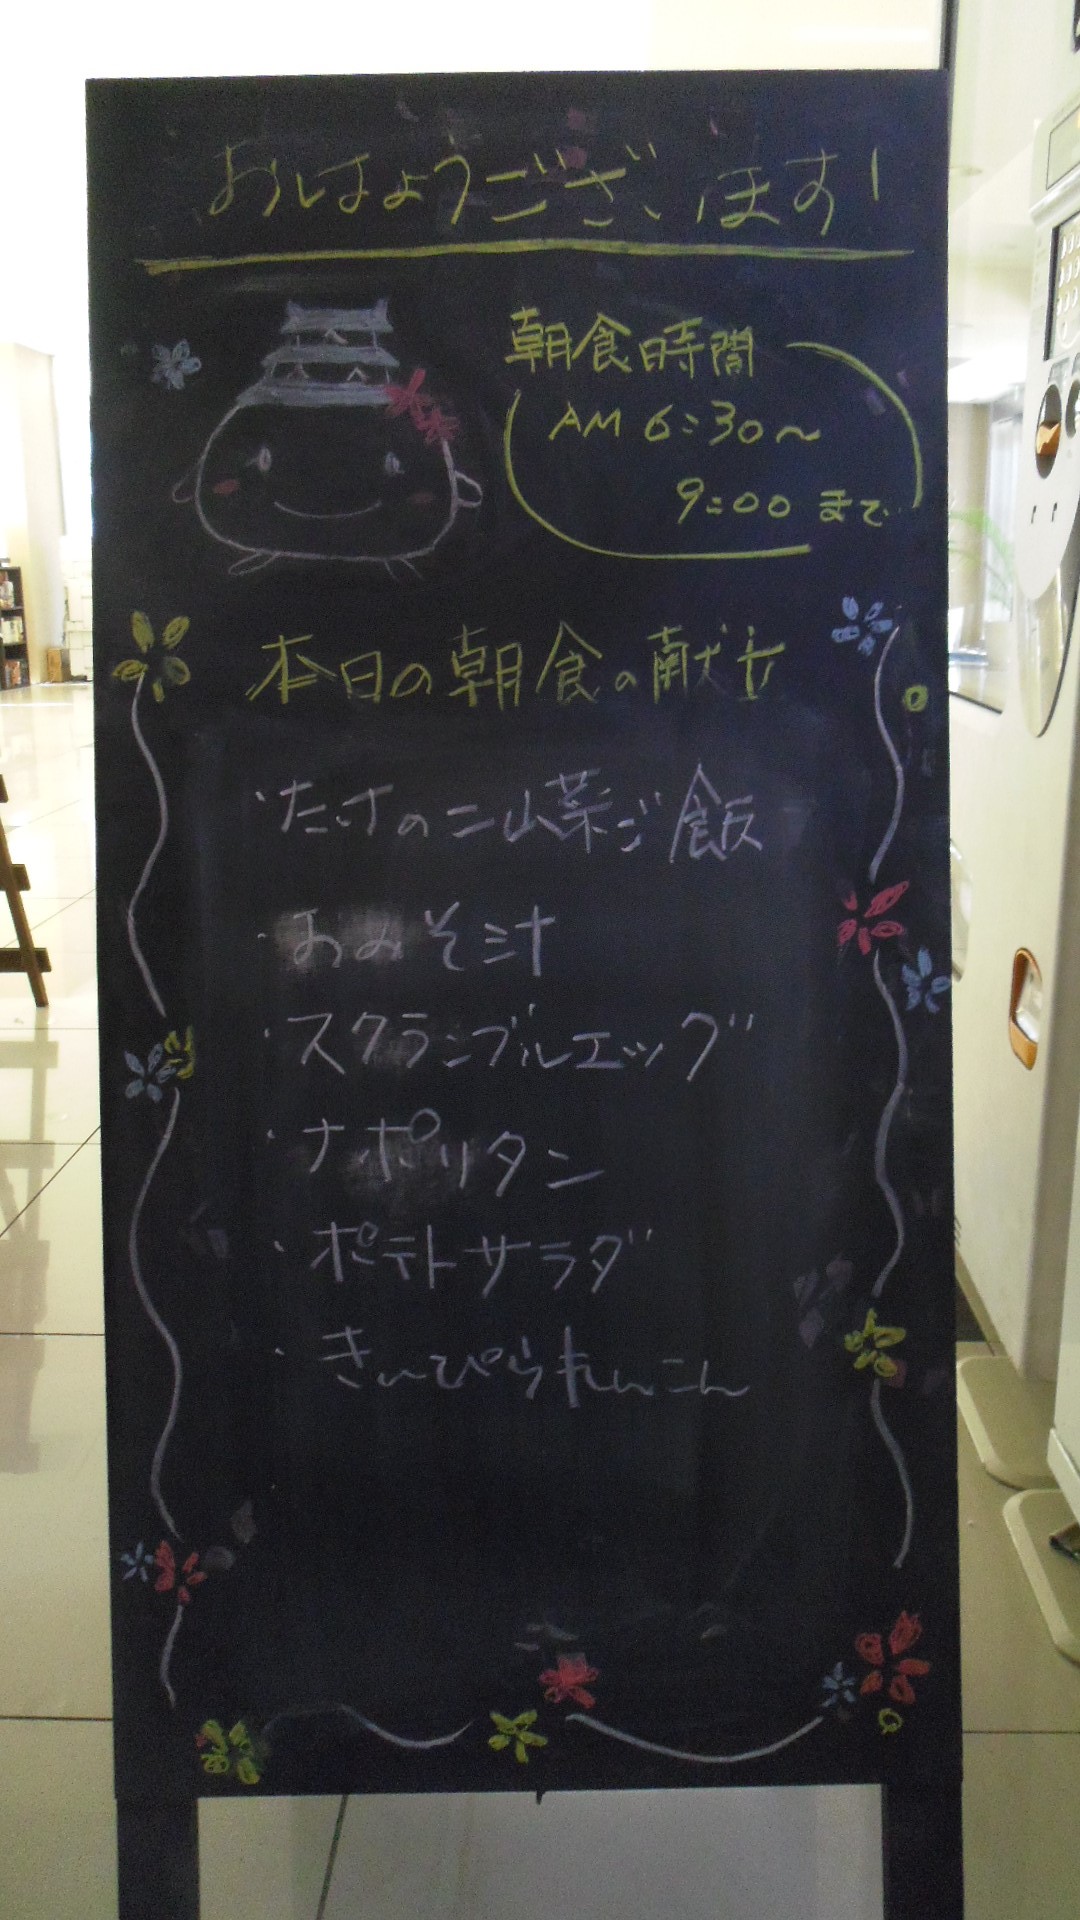 おはようございます!
朝食時間
AM 6:30～
9:00 まで
本日の朝食の献立
・たけのこ山菜ご飯
・おみそ汁
・スクランブルエッグ
・ナポリタン
・ポテトサラダ
・きんぴられんこん